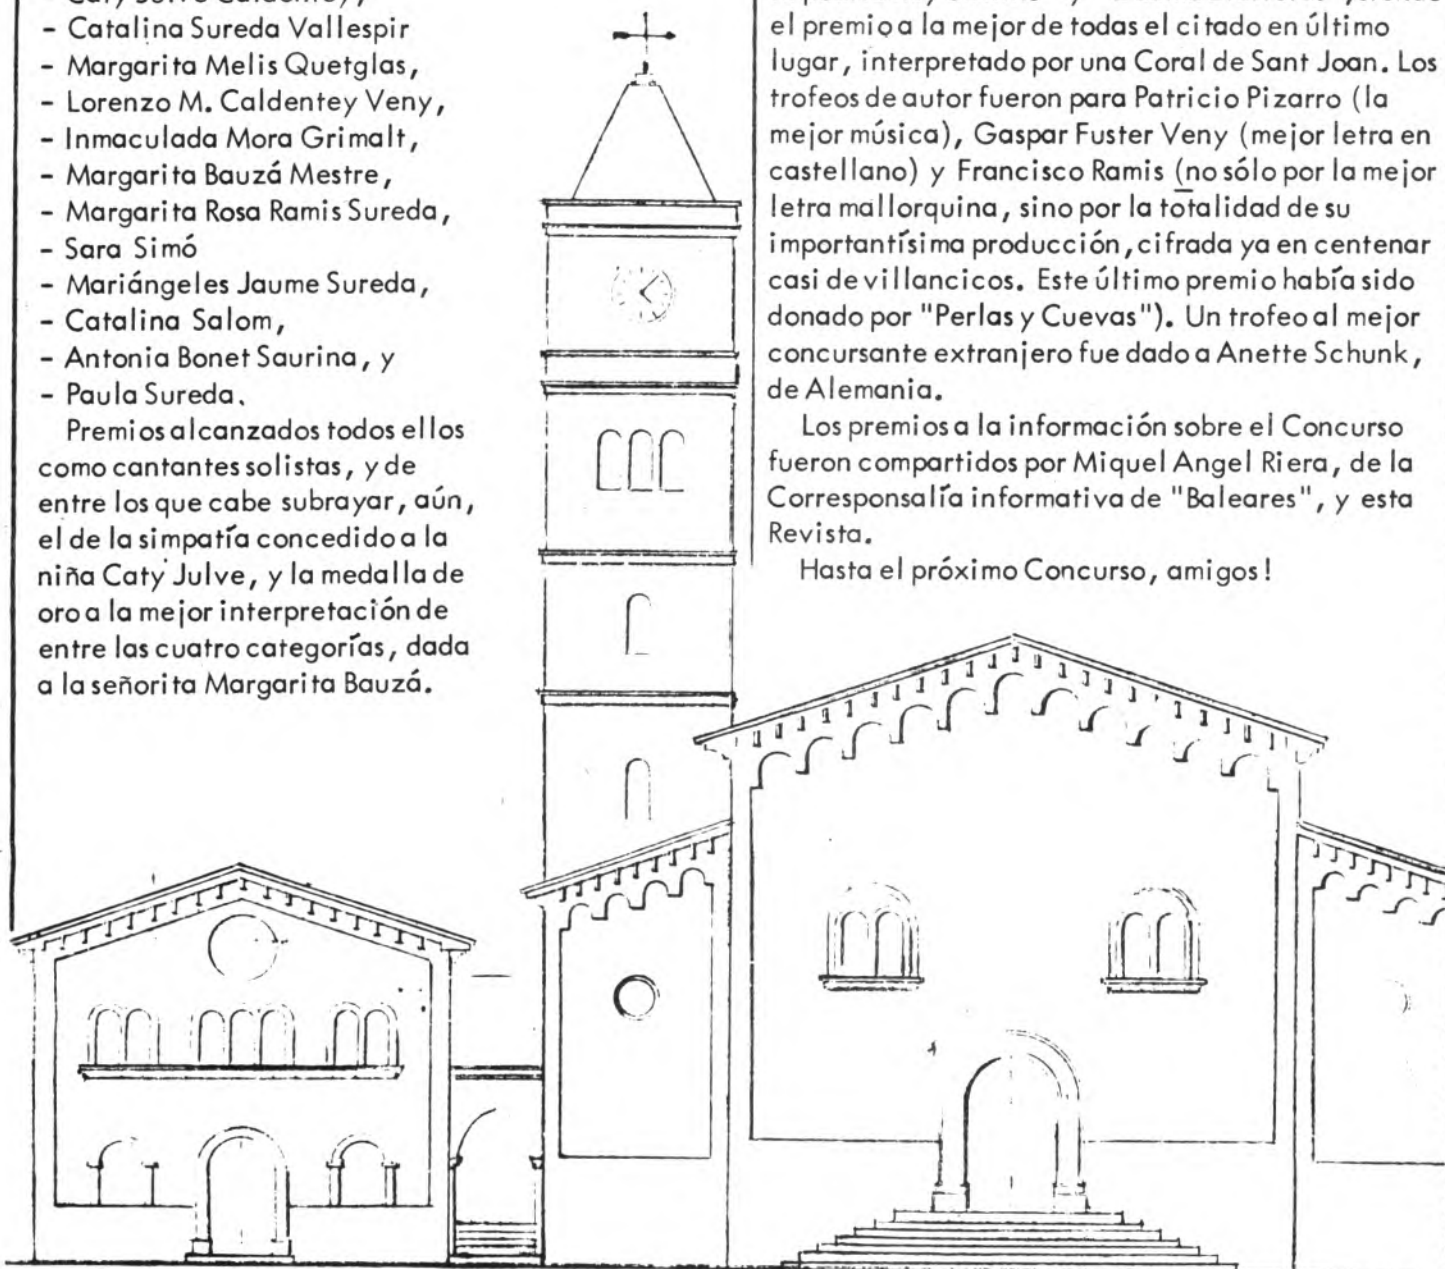 - Catalina Sureda Vallespir
- Margarita Melis Quetglas,
- Lorenzo M. Caldentey Veny,
- Inmaculada Mora Grimalt,
- Margarita Bauzá Mestre,
- Margarita Rosa Ramis Sureda,
- Sara Simó
- Mariángeles Jaume Sureda,
- Catalina Salom,
- Antonia Bonet Saurina, y
- Paula Sureda.
Premios alcanzados todos ellos
como cantantes solistas, y de
entre los que cabe subrayar, aún,
el de la simpatía concedido a la
niña Caty Julve, y la medalla de
oro a la mejor interpretación de
entre las cuatro categorías, dada
a la señorita Margarita Bauzá.
el premio a la mejor de todas el citado en último
lugar, interpretado por una Coral de Sant Joan. Los
trofeos de autor fueron para Patricio Pizarro (la
mejor música), Gaspar Fuster Veny (mejor letra en
castellano) y Francisco Ramis (no sólo por la mejor
letra mallorquina, sino por la totalidad de su
importantísima producción, cifrada ya en centenar
casi de villancicos. Este último premio había sido
donado por "Perlas y Cuevas"). Un trofeo al mejor
concursante extranjero fue dado a Anette Schunk,
de Alemania.
Los premios a la información sobre el Concurso
fueron compartidos por Miquel Angel Riera, de la
Corresponsalía informativa de "Baleares", y esta
Revista.
Hasta el próximo Concurso, amigos!